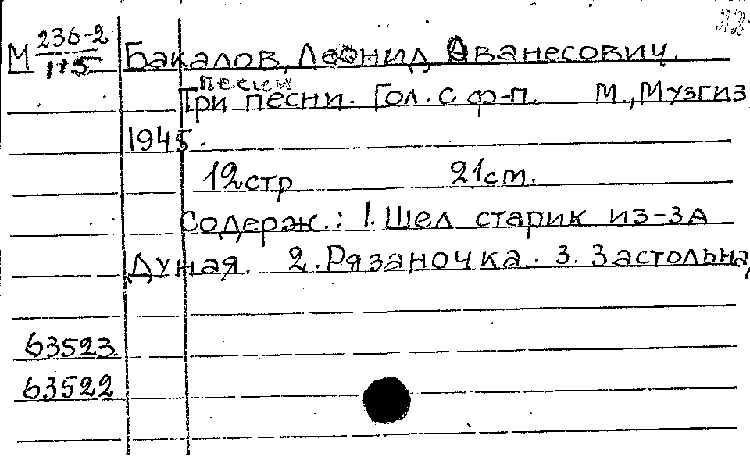 22
М 236-2 Бакалов, Леонид Ованесович.
175
песни
Три песни. Гол. с ф-п. М., Музгиз
1945.
12стр 21см.
Содерж.: 1. Шел старик из-за
Дуная. 2. Рязаночка. 3. Застольна
63523
63522